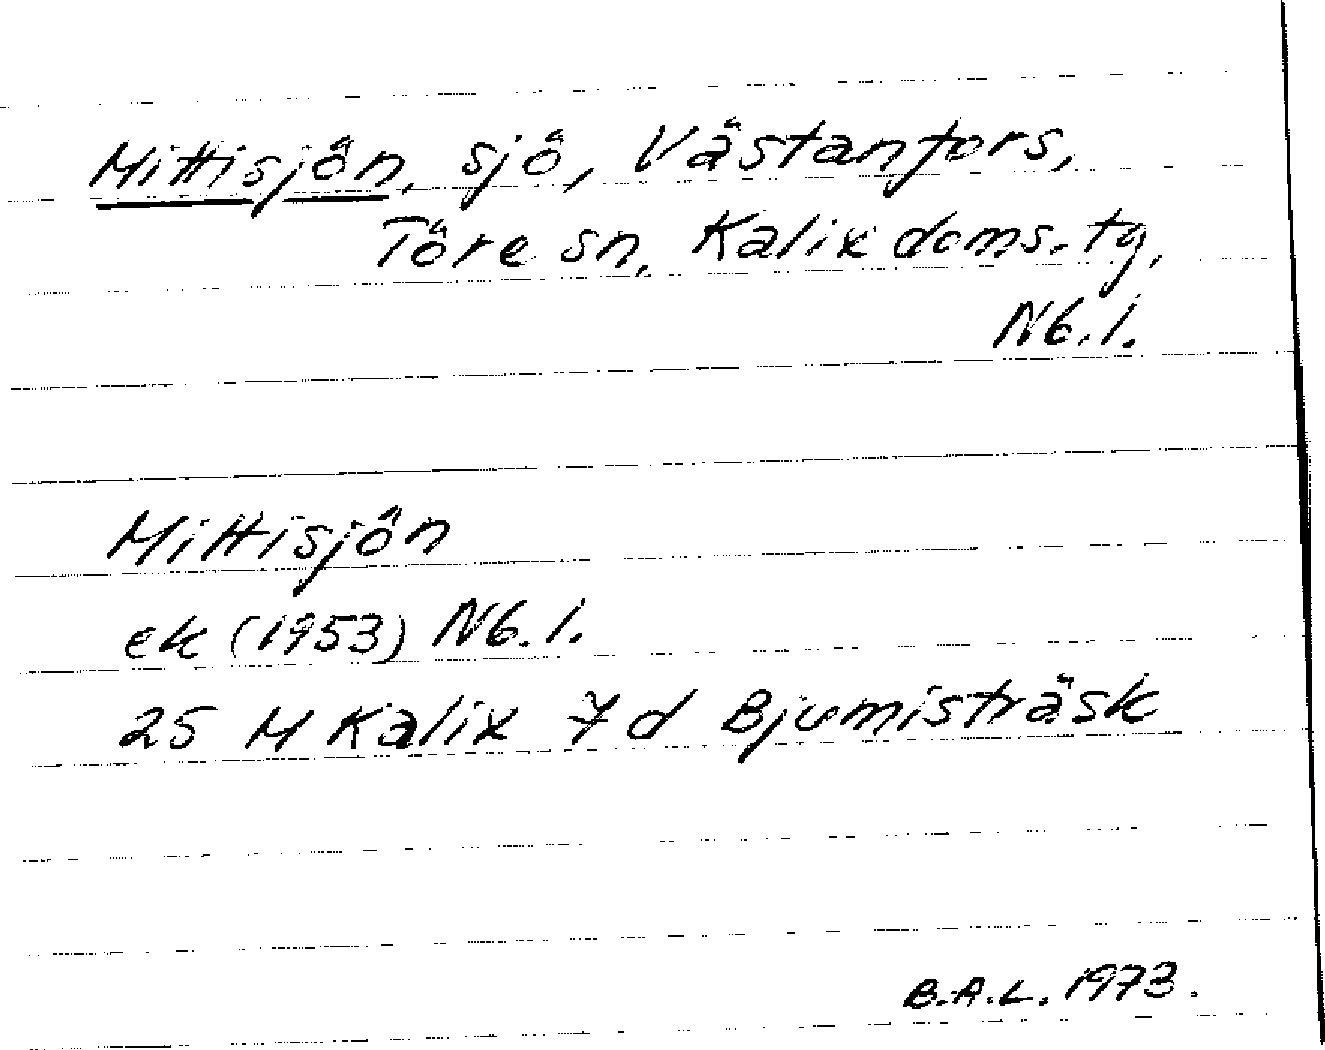 Mittisjön, sjö, Västanfors,
Töre sn, Kalix doms. tg,
Nb. l.
Mittisjön
ek (1953) Nb. l.
25 M Kalix 7 d Bjumisträsk
B.A.L. 1973.